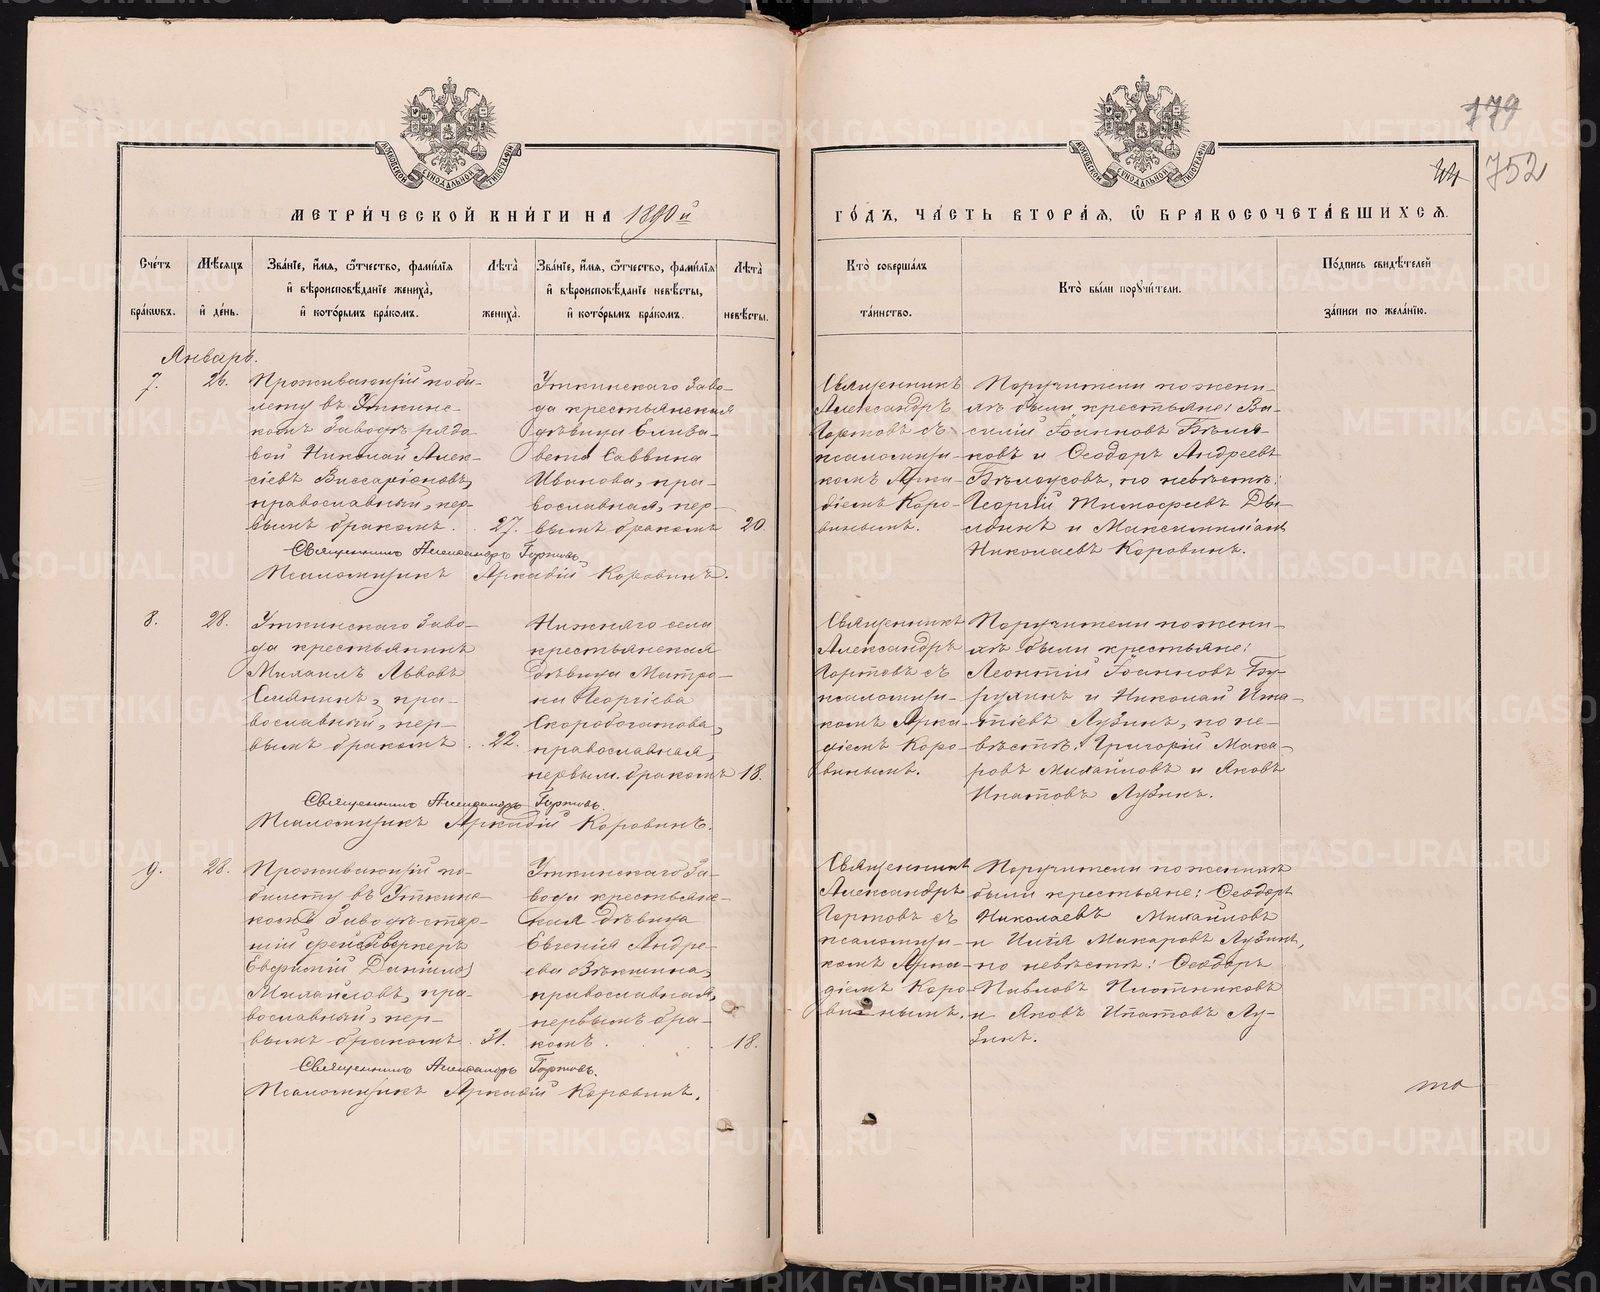 179
44
752
МЕТРИ́ЧЕСКОЙ КНИ́ГИ НА 1890й
ГО́ДЪ, ЧА́СТЬ ВТОРА́Я, Ѽ БРАКОСОЧЕТА́ВШИХСЯ.
Сче́тъ бра́кωвъ.
Мѣ́сяцъ и҆ де́нь.
Зва́нїе, и҆́мя, ѻ҆́тчество, фами́лїя
и҆ вѣроисповѣ́данїе жениха̀,
и҆ кото́рымъ бра́комъ.
Лѣта̀ жениха̀.
Зва́нїе, и҆́мя, ѻ҆́тчество, фами́лїя
и҆ вѣроисповѣ́данїе невѣ́сты,
и҆ кото́рымъ бра́комъ.
Лѣта̀ невѣ́сты.
Кто̀ соверша́лъ
та́инство.
Кто̀ бы́ли порꙋчи́тели.
По́дпись свидѣ́телей
за́писи по жела́нїю.
Январь.
7.
26.
Проживающій по би-
лету въ Уткинс-
комъ Заводѣ рядо-
вой Николай Алек-
сіевъ Виссаріоновъ,
православный, пер-
вымъ бракомъ.
27.
Уткинскаго Заво-
да крестьянская
дѣвица Елиза-
вета Саввина
Иванова, пра-
вославная, пер-
вымъ бракомъ
20
Священникъ
Александръ
Гортовъ съ
псаломщи-
комъ Арка-
діемъ Коро-
винымъ.
Поручители по жени-
хѣ были крестьяне: Ва-
силій Іоанновъ Бѣля-
ковъ и Ѳеодоръ Андреевъ
Бѣлоусовъ, по невѣстѣ:
Георгій Тимоѳеевъ Ды-
лдинъ и Максимиліанъ
Николаевъ Коровинъ.
Священникъ Александръ Гортовъ.
Псаломщикъ Аркадій Коровинъ.
8.
28.
Уткинскаго Заво-
да крестьянинъ
Михаилъ Львовъ
Семянинъ, пра-
вославный, пер-
вымъ бракомъ
22.
Нижняго села
крестьянская
дѣвица Матро-
на Георгіева
Скоробогатова,
православная,
первым. бракомъ
18.
Священникъ
Александръ
Гортовъ съ
псаломщи-
комъ Арка-
діемъ Коро-
винымъ.
Поручители по жени-
хѣ были крестьяне:
Леонтій Іоанновъ Бу-
рухинъ и Николай Ипа-
тіевъ Лузинъ, по не-
вѣстѣ: Григорій Мака-
ровъ Михайловъ и Яковъ
Ипатовъ Лузинъ.
Священникъ Александръ Гортовъ.
Псаломщикъ Аркадій Коровинъ.
9.
28.
Проживающій по
билету въ Уткинс-
комъ Заводѣ стар-
шій фейерверкеръ
Евфимій Даніиловъ
Михайловъ, пра-
вославный, пер-
вымъ бракомъ.
31.
Уткинскаго За-
вода крестьянс-
кая дѣвица
Евгенія Андре-
ева Вѣкшина,
православная,
первымъ бра-
комъ.
18.
Священникъ
Александръ
Гортовъ съ
псаломщи-
комъ Арка-
діемъ Коро-
винымъ.
Поручители по женихѣ
были крестьяне: Ѳеодоръ
Николаевъ Михайловъ
и Илія Макаровъ Лузинъ,
по невѣстѣ: Ѳеодоръ
Павловъ Плотниковъ
и Яковъ Ипатовъ Лу-
зинъ.
Священникъ Александръ Гортовъ.
Псаломщикъ Аркадій Коровинъ.
то
METRIKI.GASO-URAL.RU